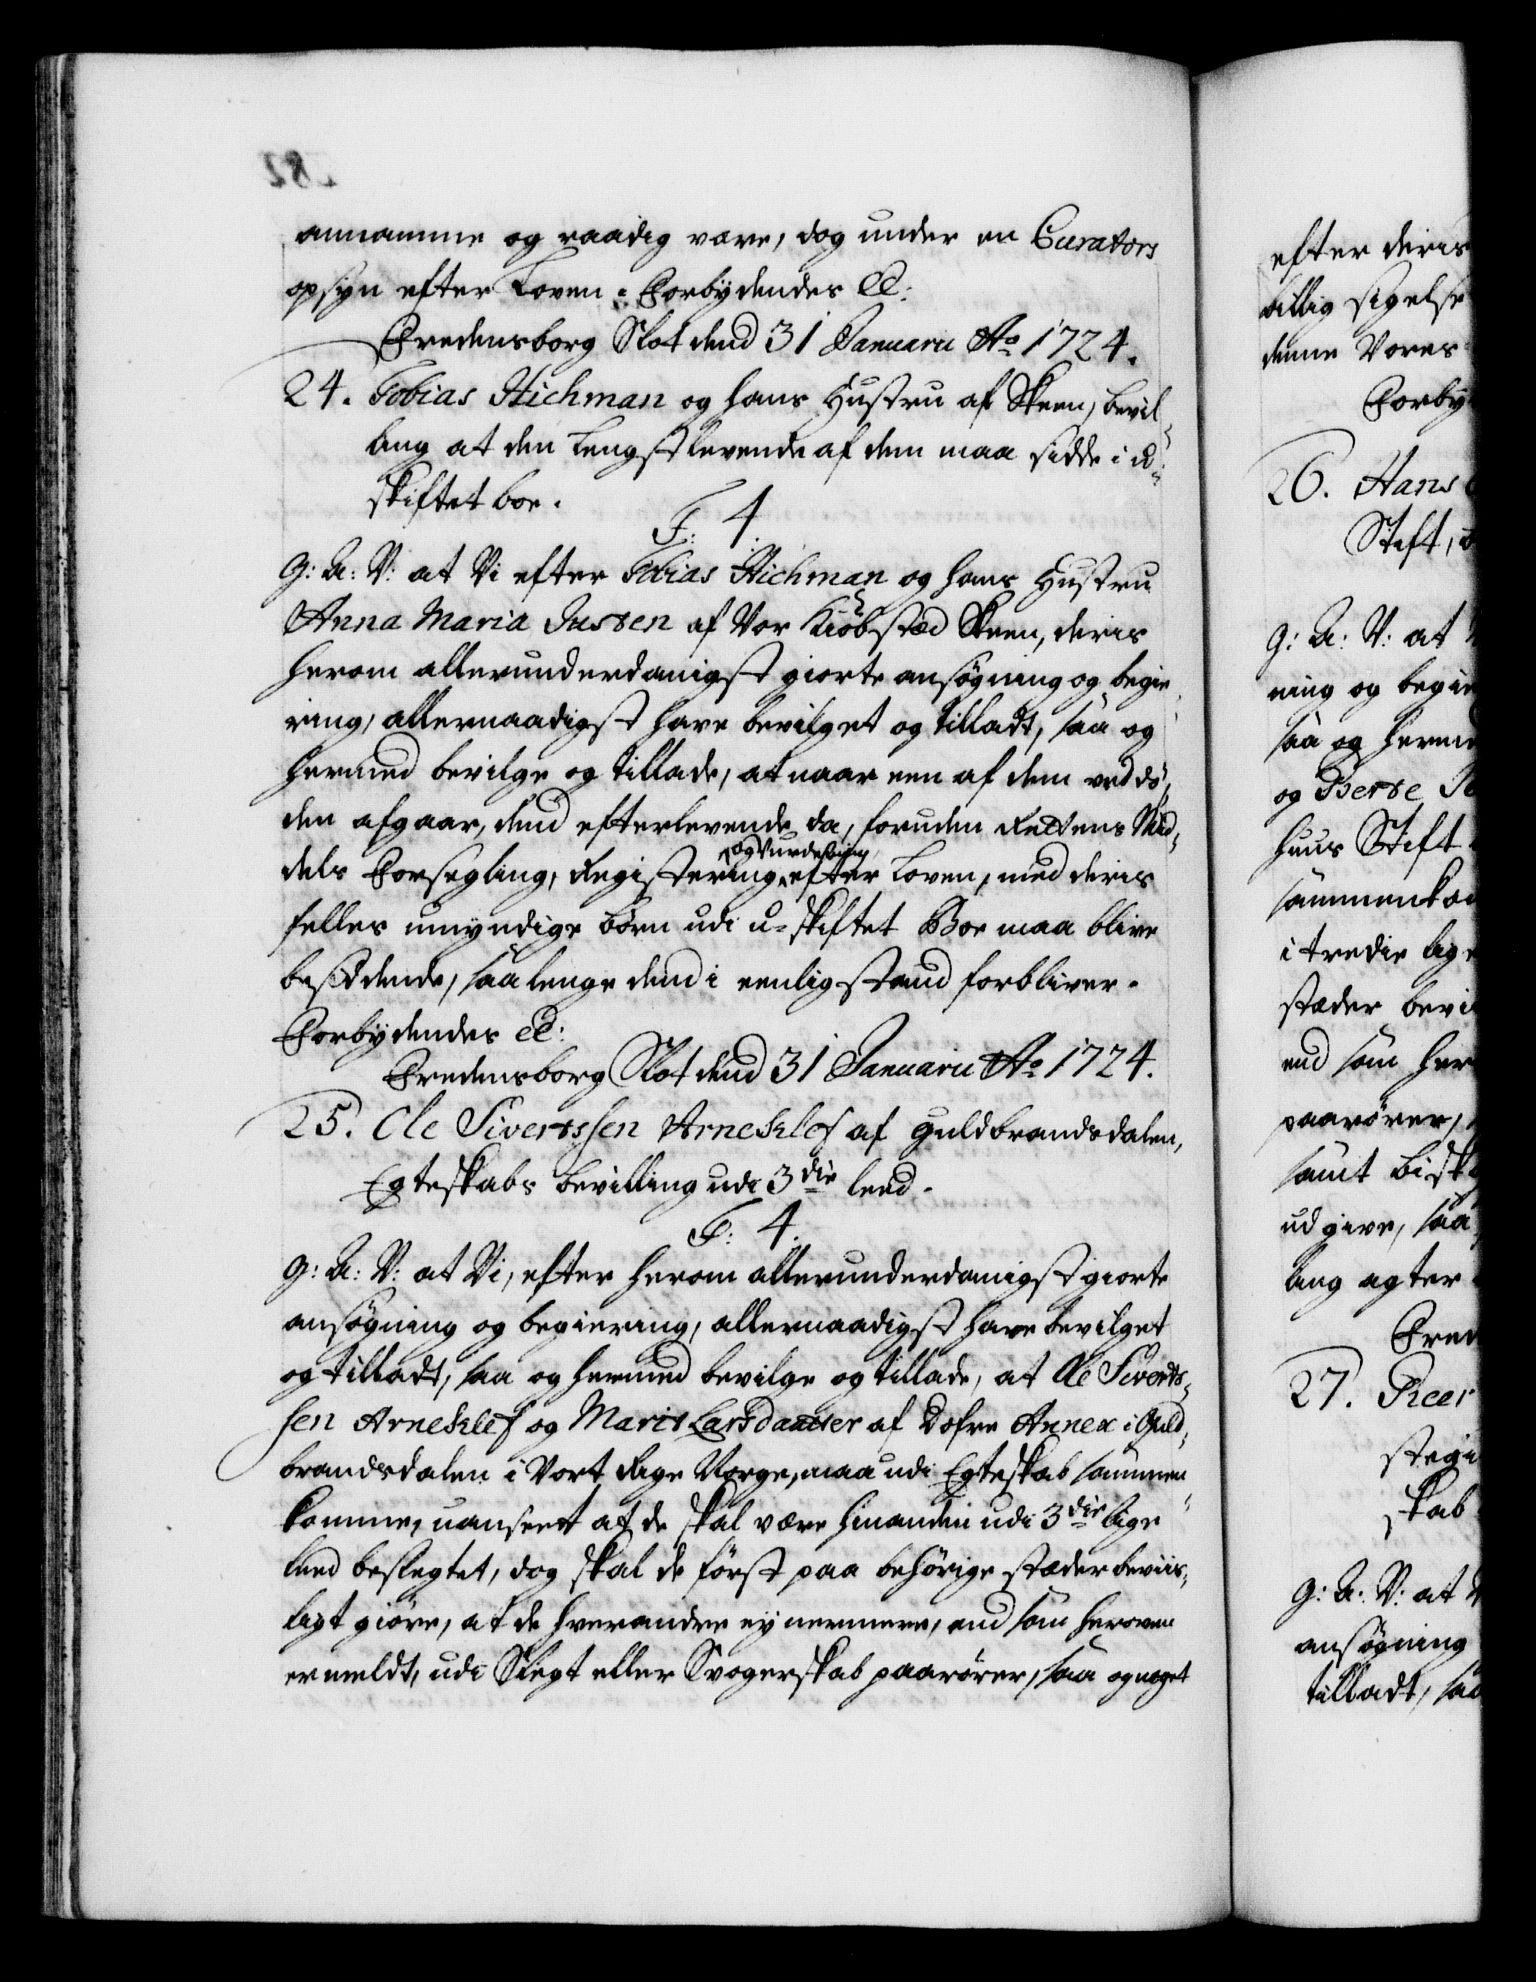 annamme og raadig være, dog under en Curators
opsyn efter Loven. Forbydendes &c:
Fredensborg Slot dend 31 Januarii Ao 1724.
24. Tobias Stichman og hans Hustru af Skeen, bevil-
ling at den Lengstlevende af dem maa sidde i u-
skiftet boe.
F: 4
G: A: V: at Vi efter Tobias Stichman og hans Hustru
Anna Maria Jussen af Vor Kiöbstæd Skeen, deris
herom allerunderdanigst giorte ansøgning og begie-
ring, allernaadigst have bevilget og tilladt, saa og
hermed bevilge og tillade, at naar een af dem ved dö-
den afgaar, dend efterlevende da, foruden Rettens Mid-
dels Forsegling, Registering og Vurdering efter Loven, med deris
felles umyndige börn udi u-skiftet Boe maa blive
besiddende, saalenge dend i eenlig stand forbliver.
Forbydendes &c:
Fredensborg Slot dend 31 Januarii Ao 1724.
25. Ole Siverssen Arneklef af Guldbrandsdalen,
Egteskabs bevilling udi 3die leed.
F: 4.
G: A: V: at Vi, efter herom allerunderdanigst giorte
ansøgning og begiering, allernaadigst have bevilget
og tilladt, saa og hermed bevilge og tillade, at Ole Siverts-
sen Arneklef og Marit Larsdaatter af Dofre Annex i Guld-
brandsdalen i Vort Rige Norge, maa udi Egteskab sammen-
komme, uanseet at de skal være hinanden udi 3die lige
leed beslegtet, dog skal de först paa behörige stæder beviis-
ligt giöre, at de hverandre ey nermere, end som heroven
ermeldt, udi Slegt eller Svogerskab paarörer, saa og noget
efter deris
billig sigelse
denne Vores
Forby
26. Hans
Stift,
G: A: V: at
ning og begie
saa og herme
og Berte
huus Stift
sammenkom
i tredie lige
stæder bevi
end som her
paarörer,
samt bisk
udgive, saa
ling agter
Fred
27. Peer
stegi
skab
G: A: V: at
ansøgning
tilladt, saa